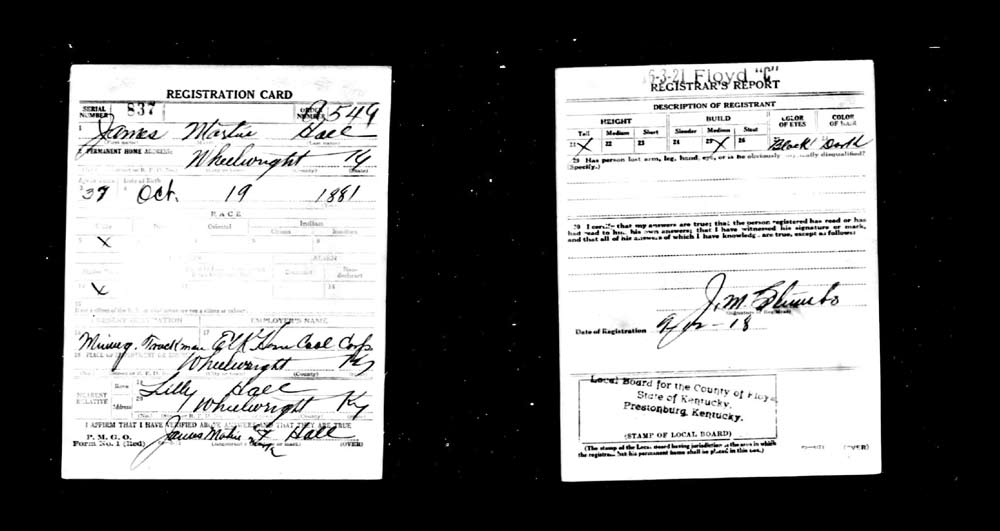 REGISTRATION CARD
SERIAL NUMBER 837
ORDER NUMBER 2549
1 James Martin Hall
(First name) (Last name)
2 PERMANENT HOME ADDRESS:
Wheelwright Ky
(County) (State)
Age in Years Date of Birth
37 Oct. 19 1881
RACE
Oriental Indian
Citizen
5 X 8 9
X
PRESENT OCCUPATION EMPLOYER'S NAME
Mining. Trackman 17 Elk Horn Coal Corp
18 PLACE OF EMPLOYMENT OR
Wheelwright Ky
(County)
NEAREST RELATIVE
Name 19 Lilly Hall
Address 20 Wheelwright Ky
I AFFIRM THAT I HAVE VERIFIED ABOVE ANSWERS AND THAT THEY ARE TRUE
P. M. G. O.
Form No. 1 (Red) James Hall (OVER)
6-3-21 Floyd "C"
REGISTRAR'S REPORT
DESCRIPTION OF REGISTRANT
HEIGHT BUILD COLOR OF EYES COLOR OF HAIR
Tall Medium Short Slender Medium Stout
21 X 22 23 24 25 X 26 27 Black Dark
29 Has person lost arm, leg, hand, eye, or is he obviously physically disqualified?
(Specify.)
30 I certify that my answers are true; that the person registered has read or has
had read to him his own answers; that I have witnessed his signature or mark,
and that all of his answers of which I have knowledge are true, except as follows:
J. M.
(Signature of Registrar)
Date of Registration 9/12-18
Local Board for the County of Floyd,
State of Kentucky,
Prestonburg, Kentucky.
(STAMP OF LOCAL BOARD)
(The stamp of the Local Board having jurisdiction of the area in which
the registrant has his permanent home shall be placed in this box.)
(OVER)